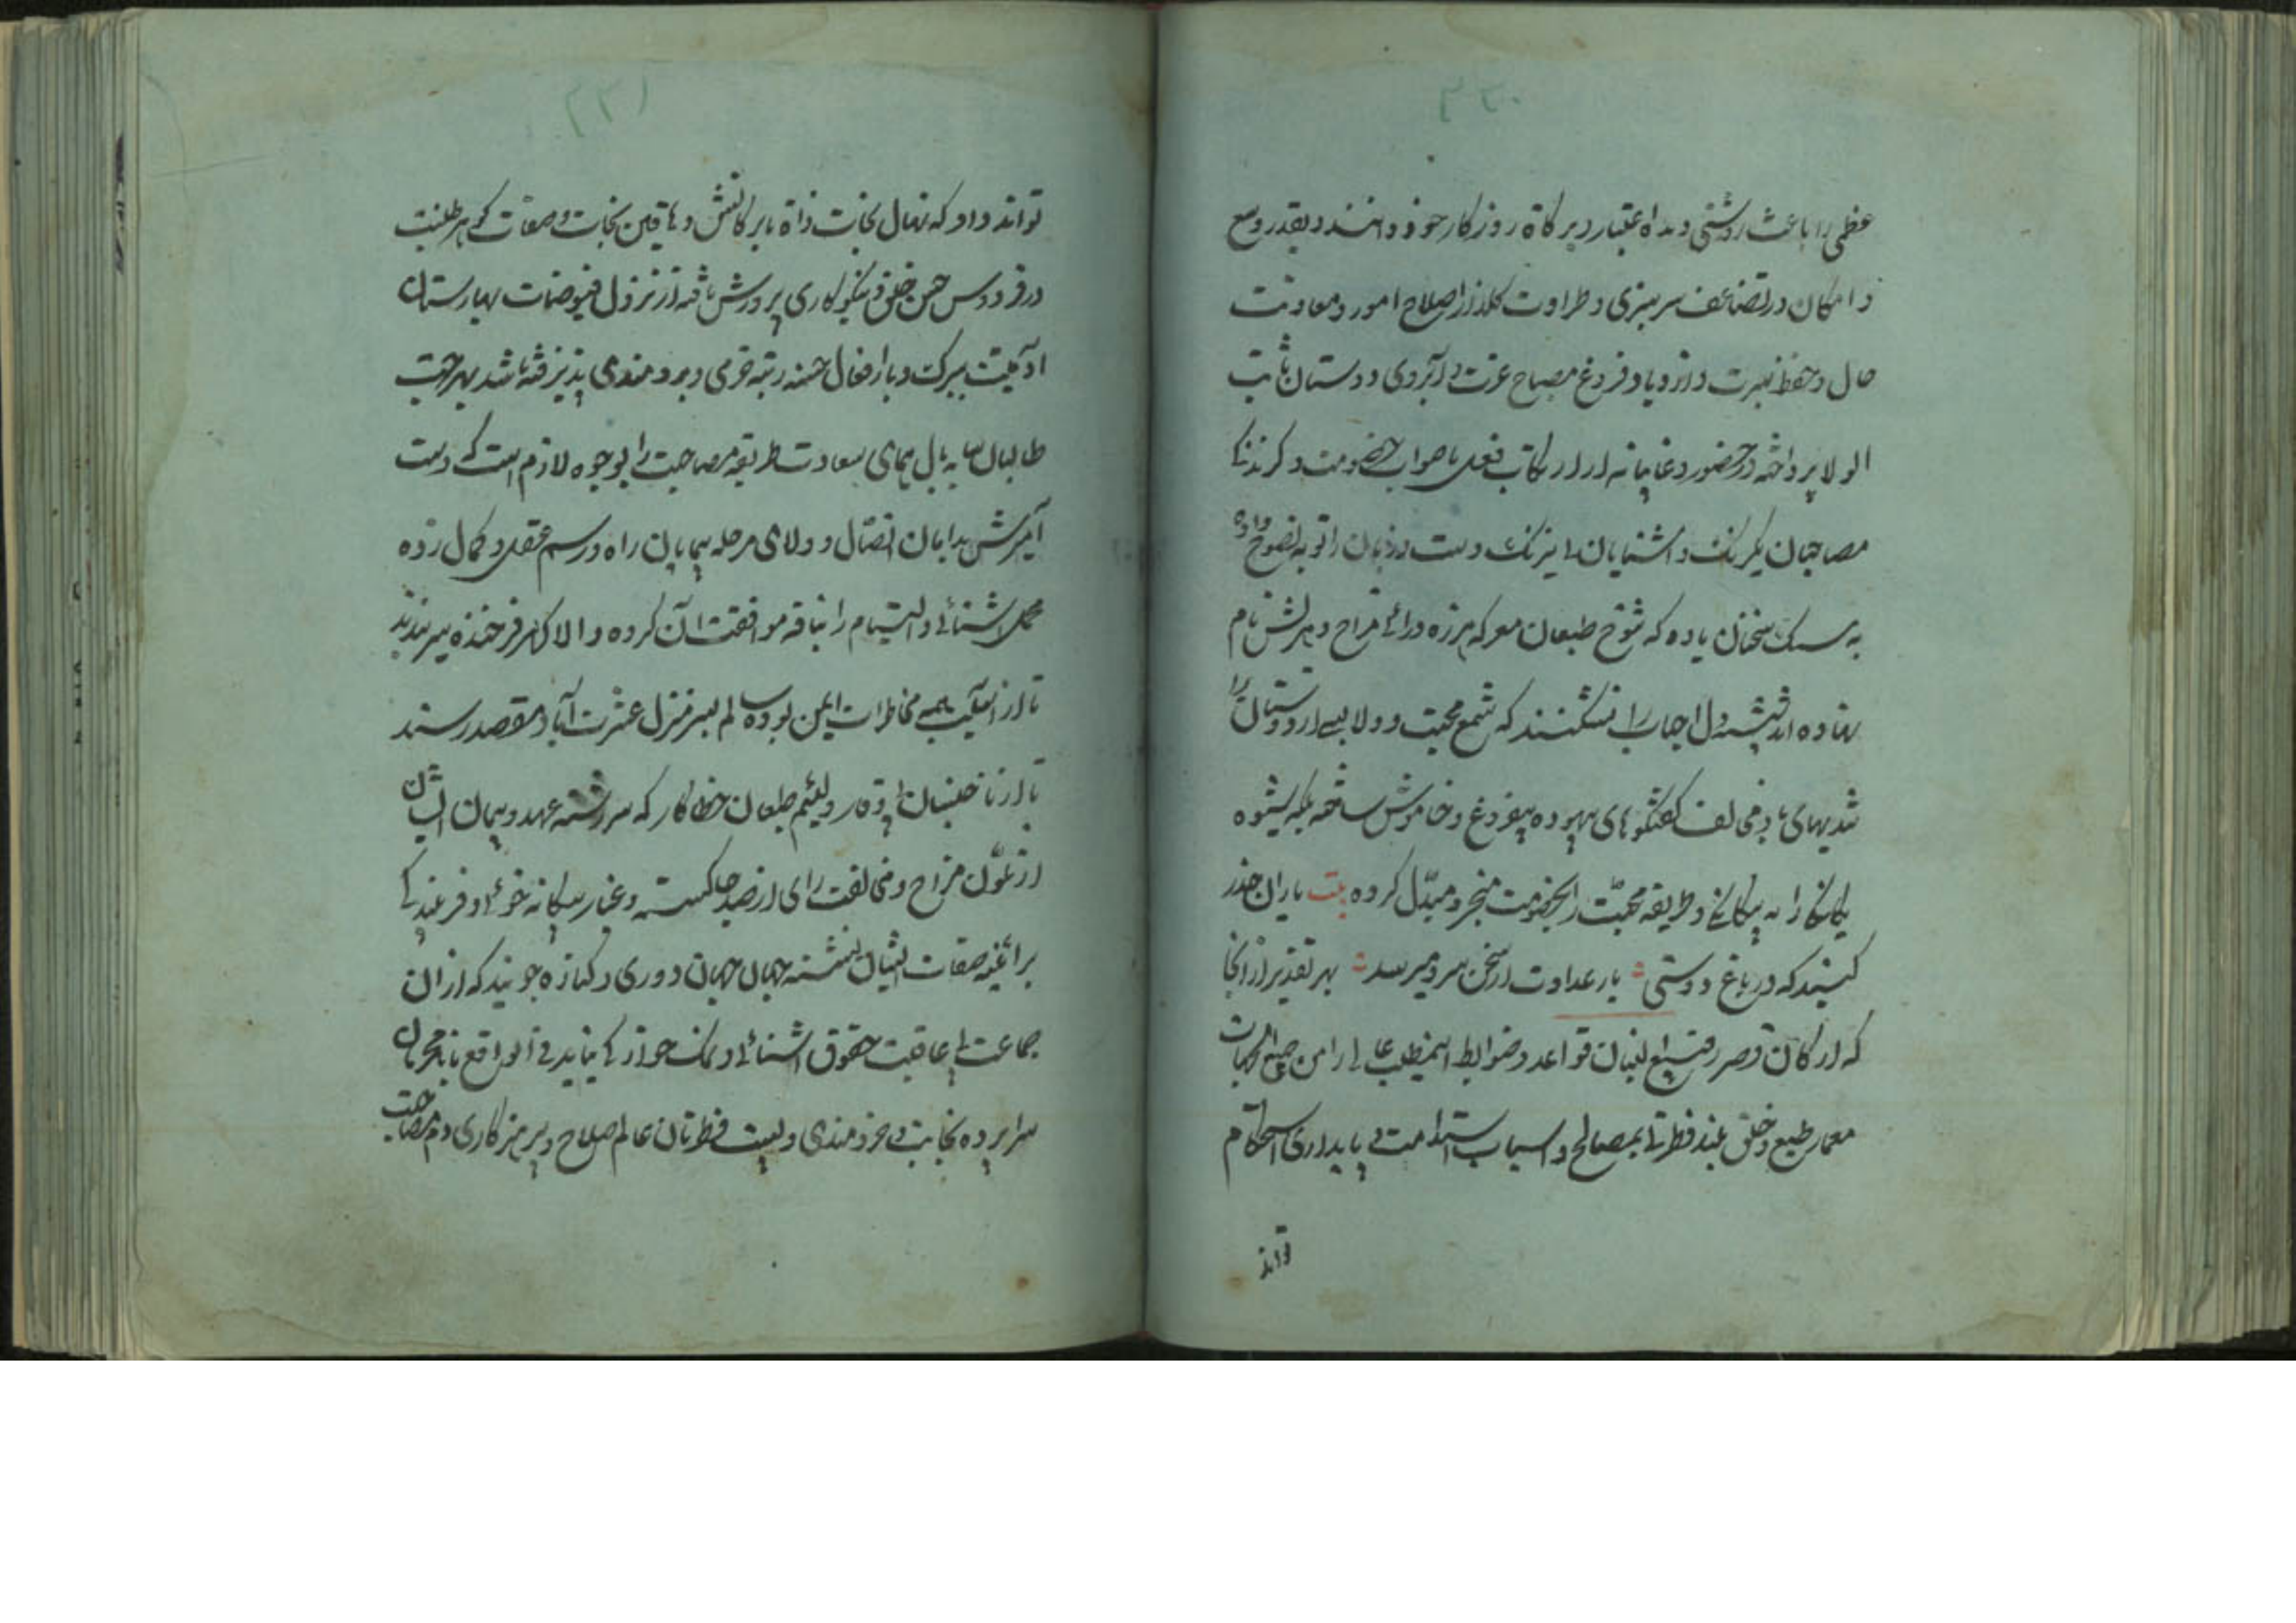 ۲۳۰
عظمی را باعث روشنی دیده اعتبار و برکاة روزکار خود دانند و بقدر وسع
و امکان در تضاعف سرسبزی و طراوت کلزار اصلاح امور و معاونت
حال و حفظ غیبت و ازدیاد فروغ مصباح عزت و آبروی دوستان ثابت
الولا پرداخته در حضور و غایبانه از ارتکاب فعل ناصواب خصومت و
مصاحبان یکرنک و آشنایان دست و زبان را توبه نصوح داده
به سنک سخنان یاده که شوخ طبعان معرکه هرزه درائی مزاح و هزلش نام
نهاده اند شیشه دل احباب را نشکنند که شمع محبت و ولا بسی از دوستان را
تندیهای باد مخالف کفتکوهای بیهوده بیفروغ و خاموش ساخته بلکه شیوه
یکانکی را به بیکانکی و طریقه محبت را بخصومت منجر و مبدل کرده بیت یاران حذر
کنید که در باغ دوستی بار عداوت از سخن سرد میرسد بهر تقدیر از آنجا
که ارکان قصر رفیع البنیان قواعد و ضوابط اینمطلب عالی را من جمیع الجهات
معمار طبع و خلق بلند فطرتی بمصالح و اسباب استدامت و پایداری استحکام
تواند
۲۳۱
تواند داد که نهال نجابت ذاة بابرکاتش و نجابت و صفات کوهر طینت
در فردوس حسن خلق و نیکو کاری پرورش یافته از نزول فیوضات بهارستان
آدمیت ببرک و بار افعال حسنه رتبه خرمی و برومندی پذیرفته باشد بهر جهت
طالبان سایه بال همای سعادت طریقه مصاحبت را بوجوه لازم است که دست
آمیزش بدامان اتصال و ولای مرحله پیمایان راه و رسم عقل و کمال زده
محمل آشنائی و التیام را بناقه موافقت آن کروه والا کهر فرخنده سیر بندند
تا از آسیب جمیع مخاطرات ایمن بوده سالم بسر منزل عشرت آباد مقصد رسند
تا از ناجنسان و لئیم طبعان خطا کار که سررشته عهد و پیمان ایشان
از تلون مزاج و مخالفت رای از صد جا کسسته و غبار بیکانه خوئی و
بر آئینه صفات ایشان نشسته جهان جهان دوری و کناره جویند که از آن
جماعت بی عاقبت حقوق آشنائی و نمک خوارکی نیاید فی الواقع نامحرمان
سراپرده نجابت و خردمندی و پست فطرتان عالم صلاح و پرهیزکاری را مصاحبت